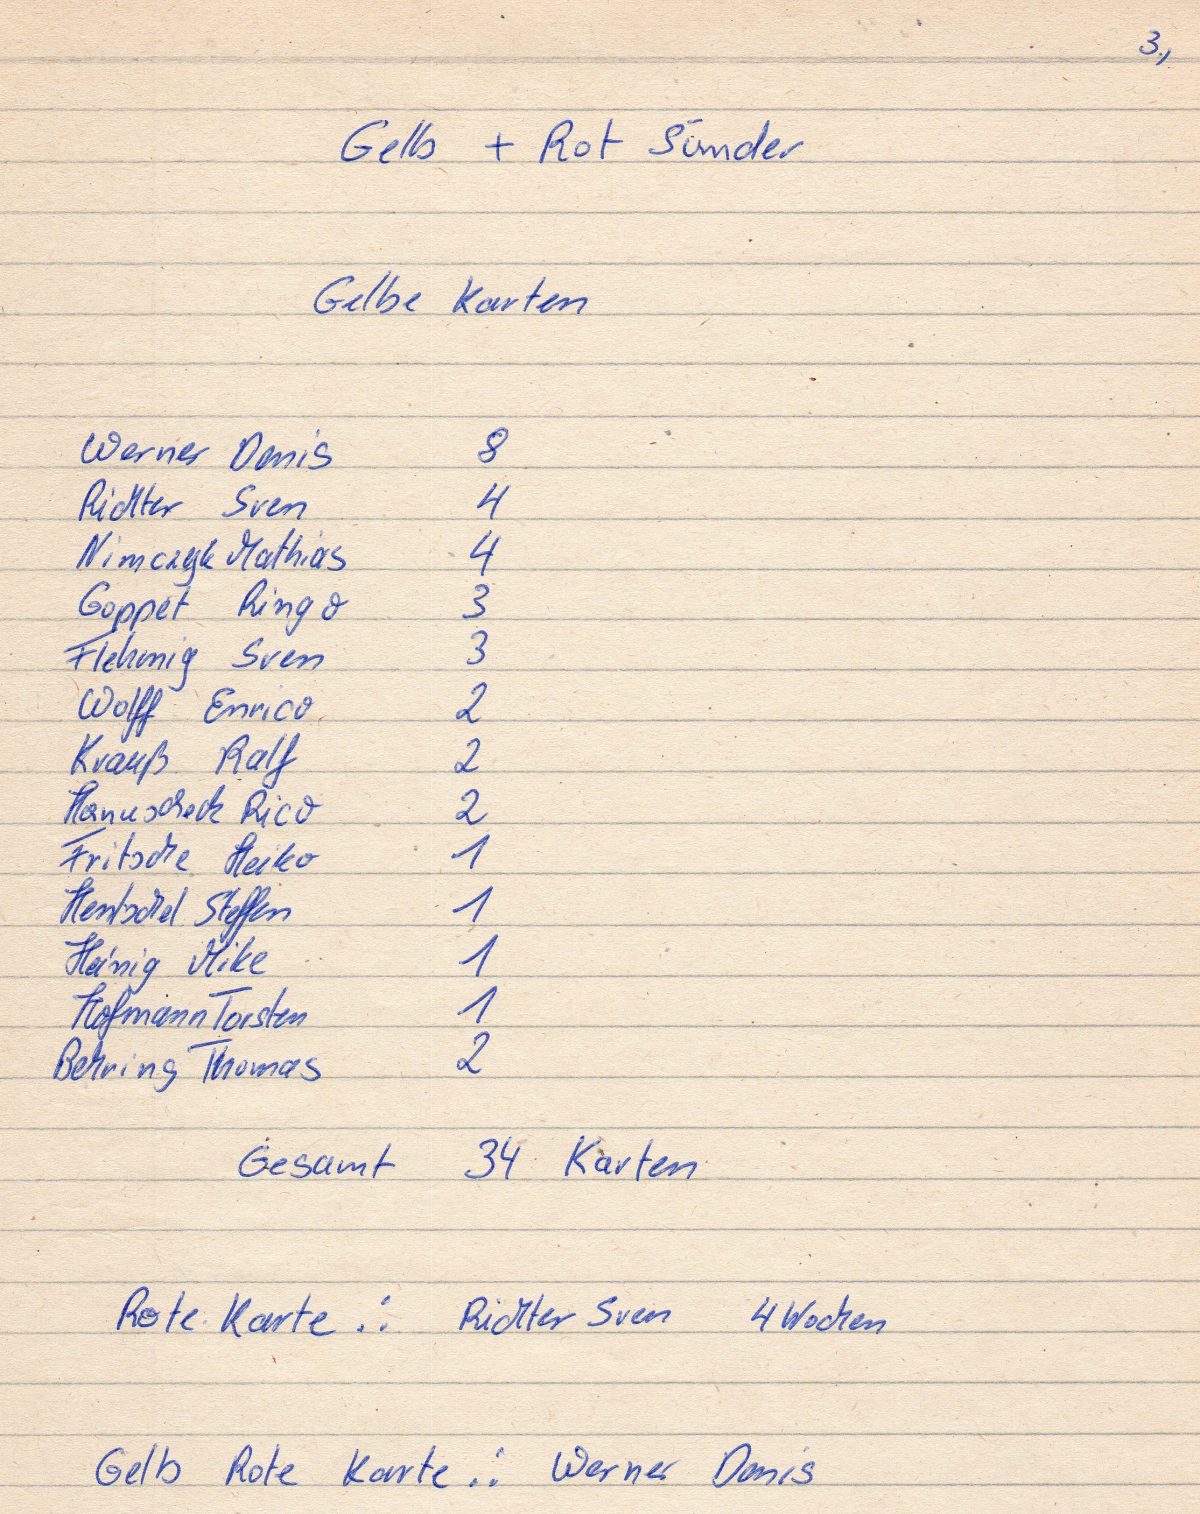 3.,
Gelb + Rot Sünder
Gelbe Karten
Werner Denis 8
Richter Sven 4
Nimczyk Mathias 4
Goppet Ringo 3
Flehmig Sven 3
Wolff Enrico 2
Krauß Ralf 2
Hanuscheck Rico 2
Fritsche Heiko 1
Hentschel Steffen 1
Hänig Mike 1
Hofmann Torsten 1
Behring Thomas 2
Gesamt 34 Karten
Rote Karte .: Richter Sven 4 Wochen
Gelb Rote Karte .: Werner Denis